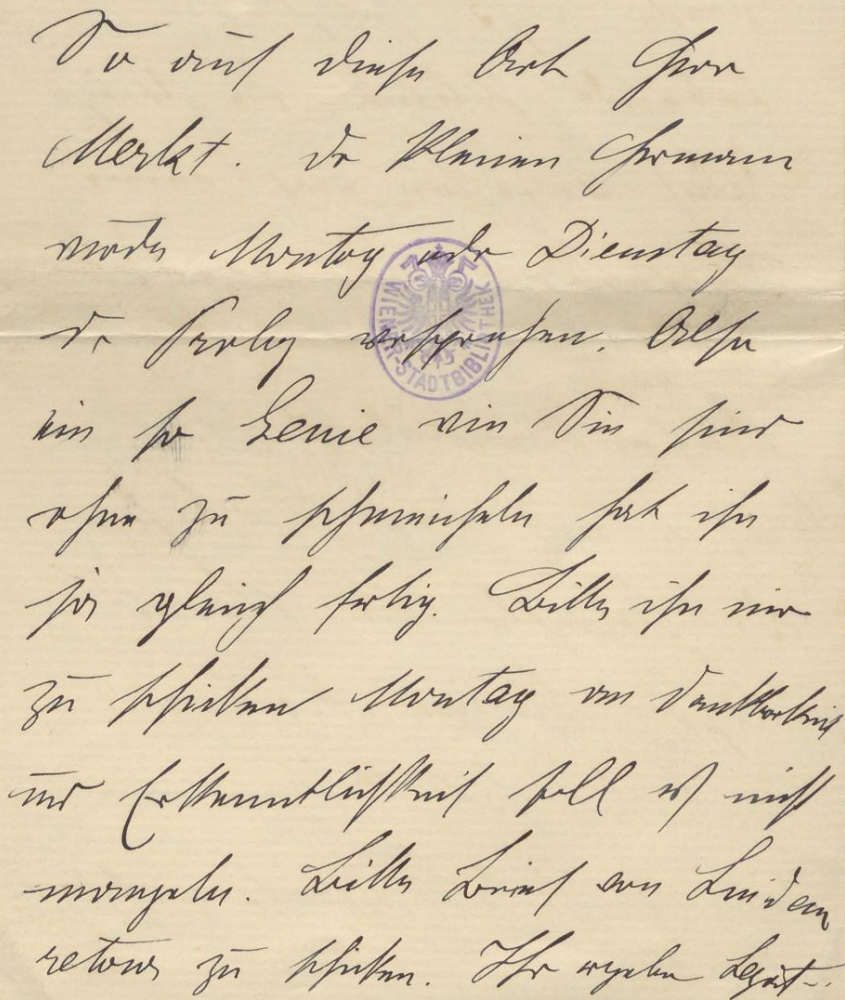 So auf diese Art Herr
Merkt. Die kleinen Hermann
werde Montag oder Dienstag
die Prolog versprechen. Also
ein so Genie wie Sie sind
ohne zu schmeicheln hat ihn
ja gleich fertig. Bitte ihn mir
zu schicken Montag an Dankbarkeit
und Erkenntlichkeit soll es nicht
mangeln. Bitte Brief von Lindau
retour zu schicken. Ihr ergeben
WIENER-STADTBIBLIOTHEK